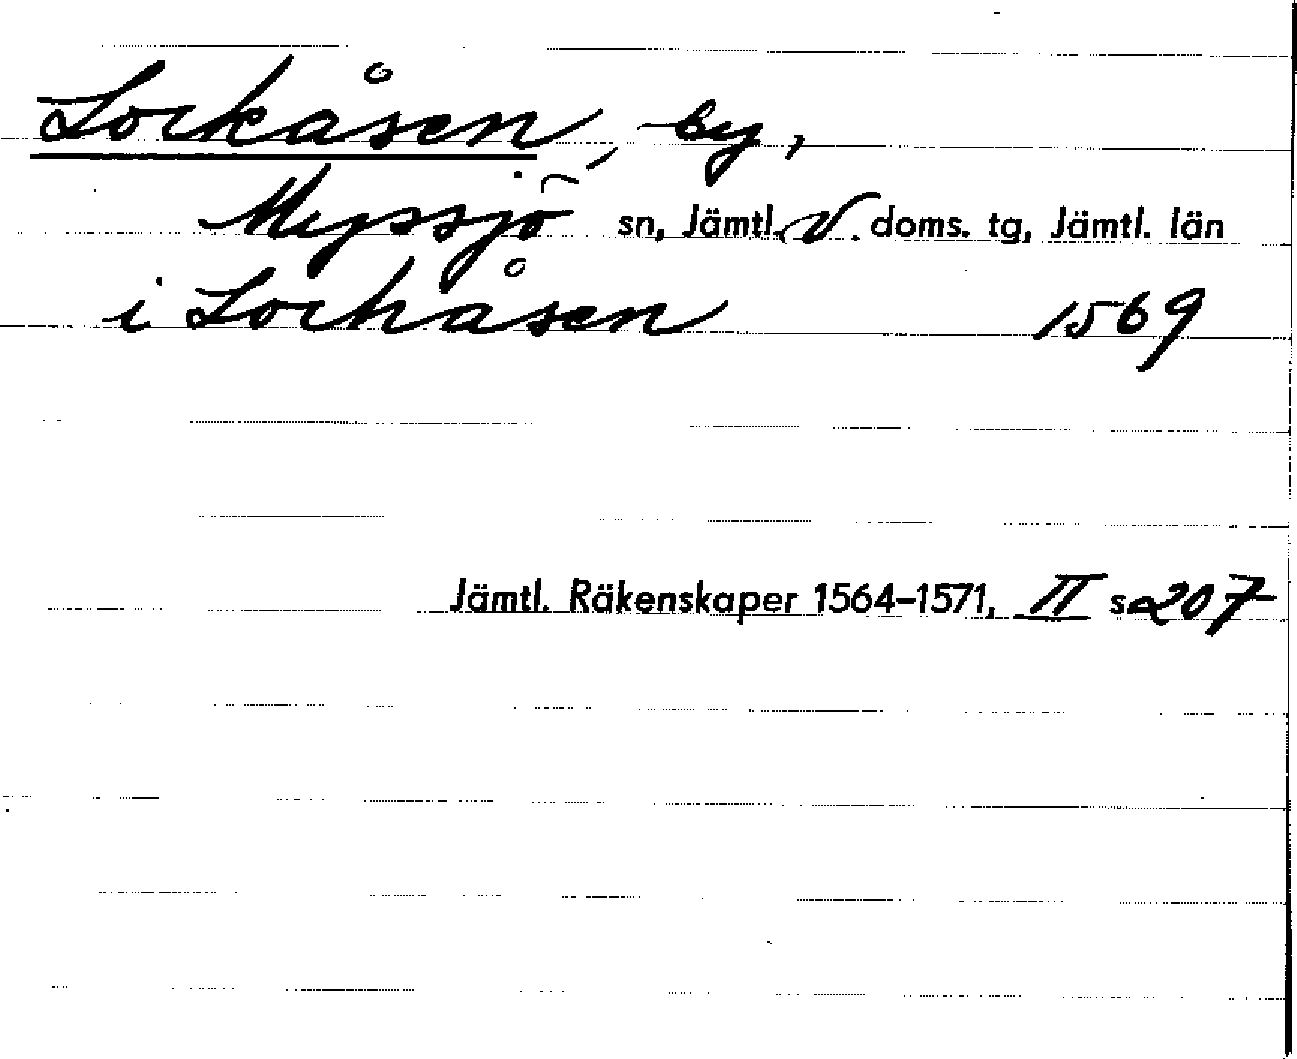 Lockåsen, by,
Myssjö sn, Jämtl. V. doms. tg, Jämtl. län
i Lochåsen 1569
Jämtl. Räkenskaper 1564–1571, II s 207